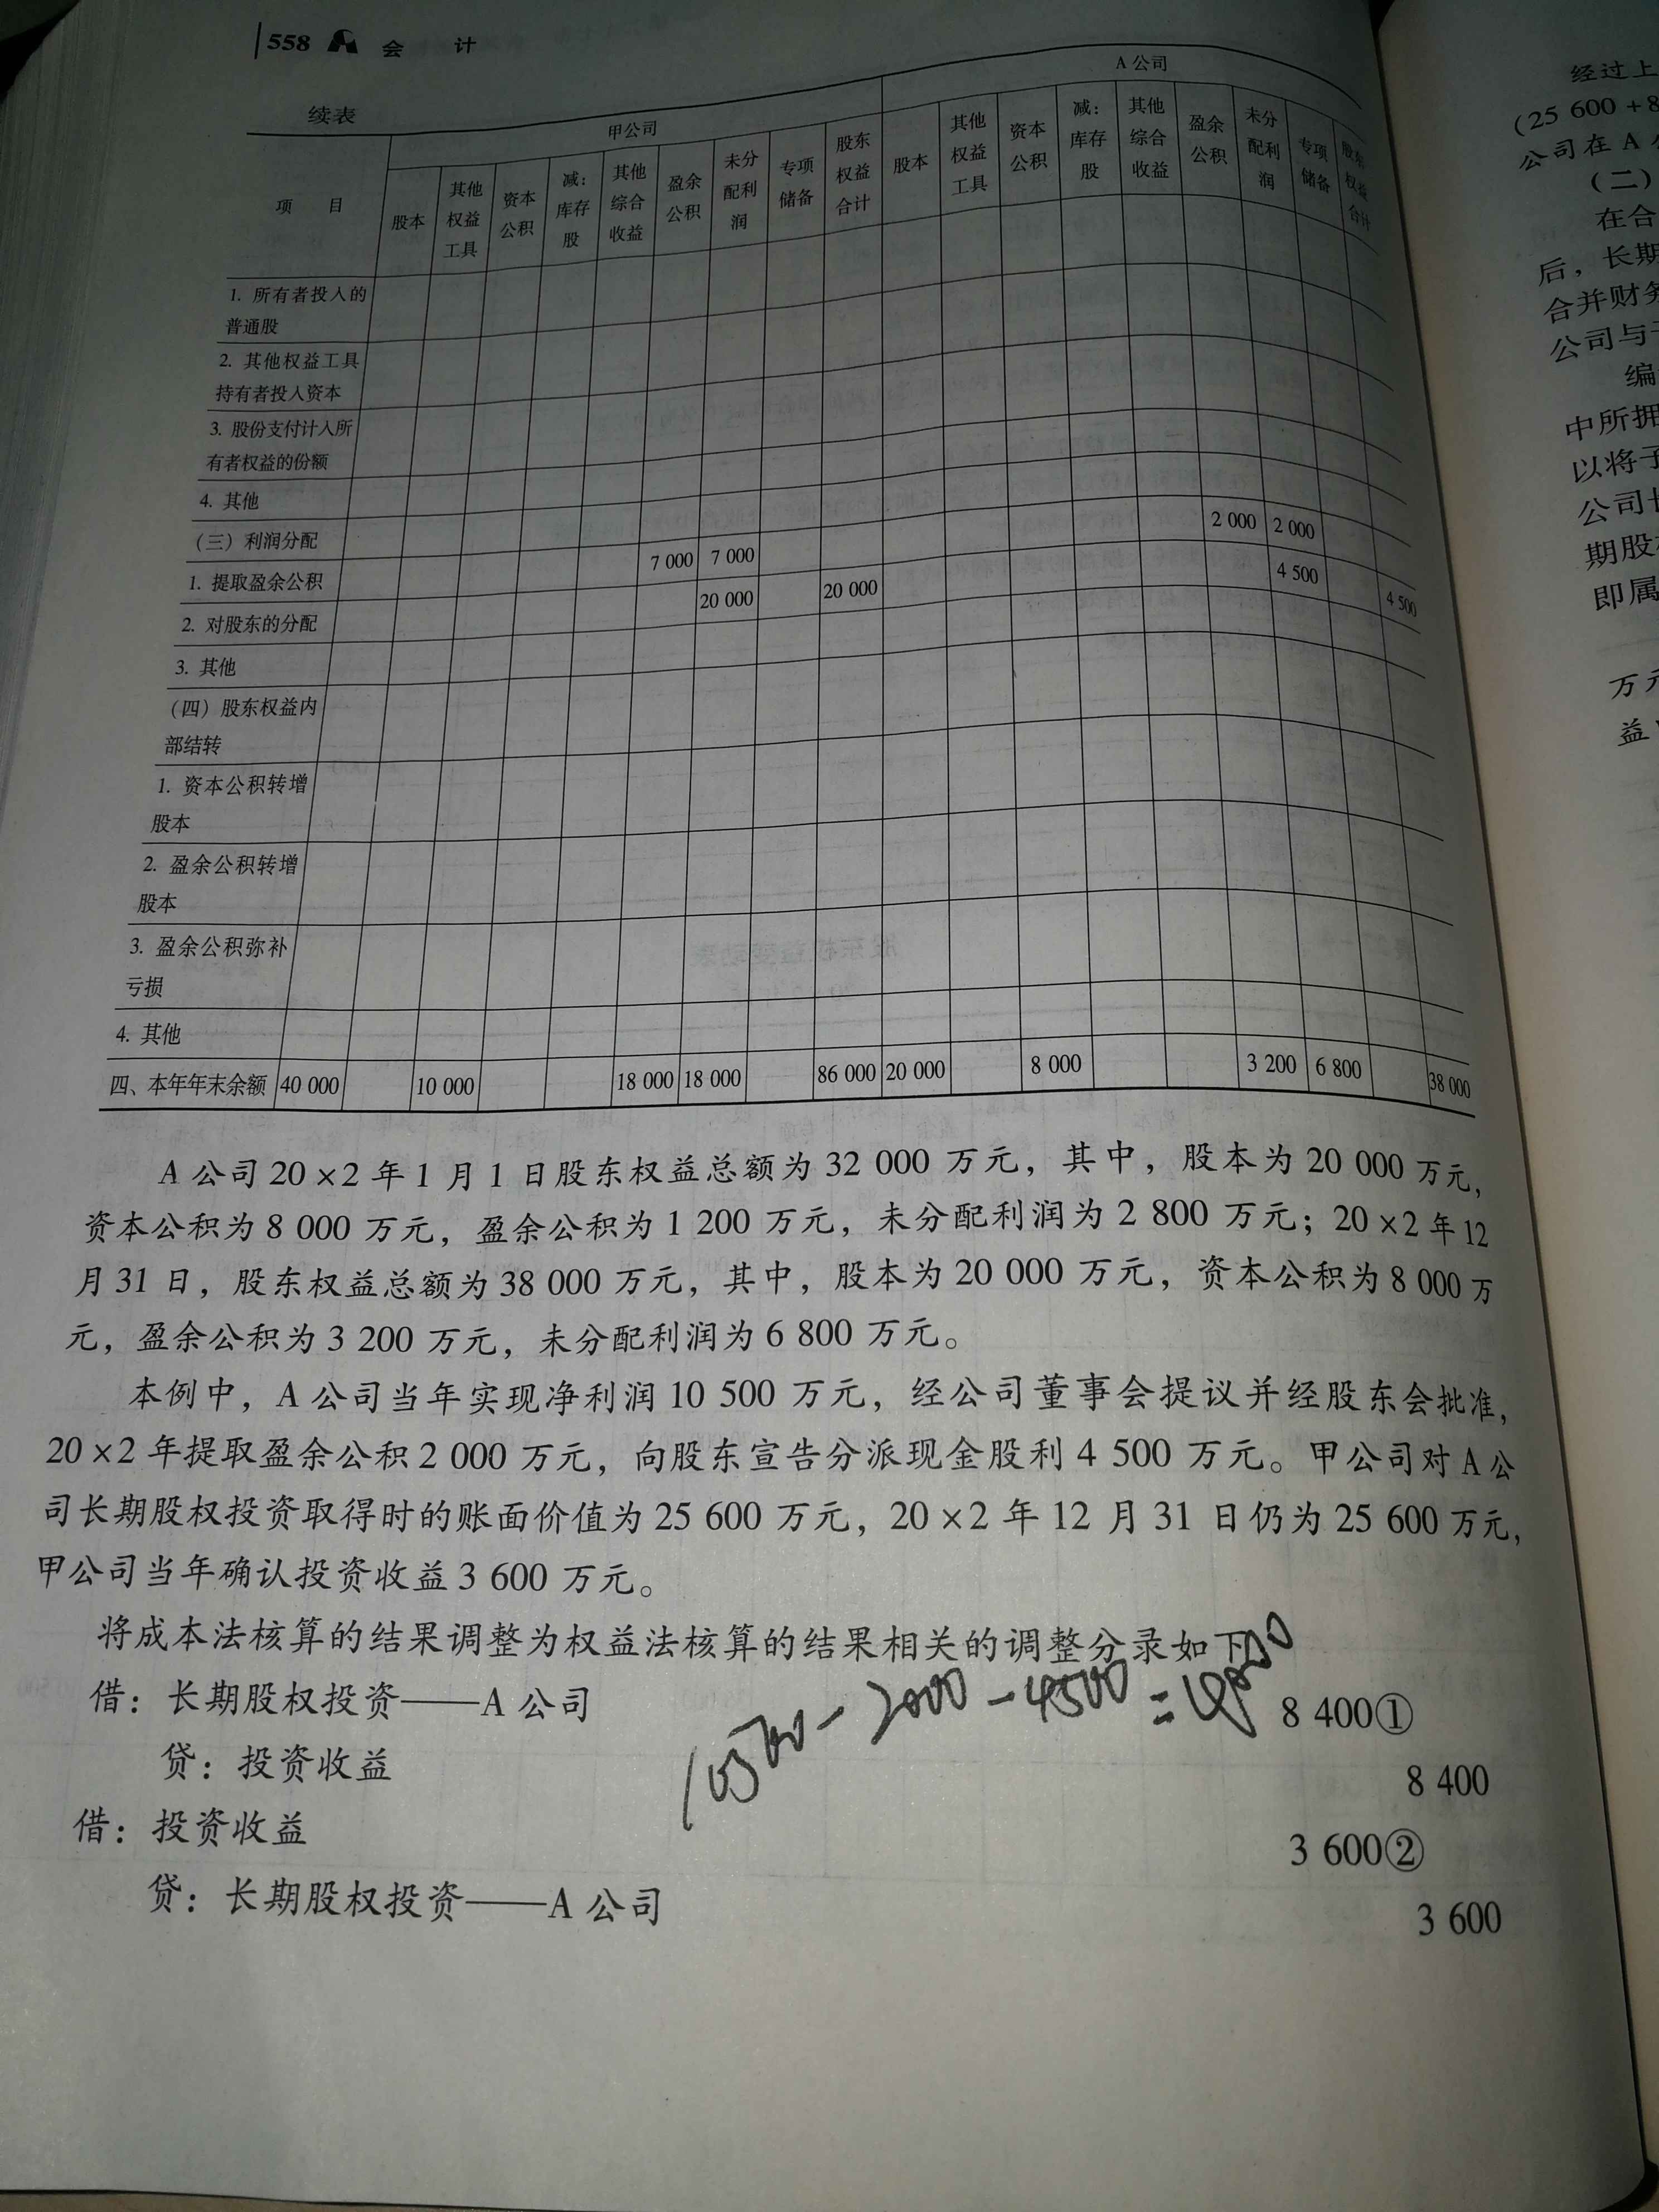 558 会 计
续表
项 目 甲公司 A 公司
股本 其他权益工具 资本公积 减:库存股 其他综合收益 盈余公积 未分配利润 专项储备 股东权益合计 股本 其他权益工具 资本公积 减:库存股 其他综合收益 盈余公积 未分配利润 专项储备 股东权益合计
1. 所有者投入的
普通股
2. 其他权益工具
持有者投入资本
3. 股份支付计入所
有者权益的份额
4. 其他
(三)利润分配
1. 提取盈余公积 7 000 7 000 2 000 2 000
2. 对股东的分配 20 000 20 000 4 500 4 500
3. 其他
(四)股东权益内
部结转
1. 资本公积转增
股本
2. 盈余公积转增
股本
3. 盈余公积弥补
亏损
4. 其他
四、本年年末余额 40 000 10 000 18 000 18 000 86 000 20 000 8 000 3 200 6 800 38 000
A 公司 20 ×2 年 1 月 1 日股东权益总额为 32 000 万元,其中,股本为 20 000 万元,
资本公积为 8 000 万元,盈余公积为 1 200 万元,未分配利润为 2 800 万元;20 ×2 年 12
月 31 日,股东权益总额为 38 000 万元,其中,股本为 20 000 万元,资本公积为 8 000 万
元,盈余公积为 3 200 万元,未分配利润为 6 800 万元。
本例中,A 公司当年实现净利润 10 500 万元,经公司董事会提议并经股东会批准,
20 ×2 年提取盈余公积 2 000 万元,向股东宣告分派现金股利 4 500 万元。甲公司对 A 公
司长期股权投资取得时的账面价值为 25 600 万元,20 ×2 年 12 月 31 日仍为 25 600 万元,
甲公司当年确认投资收益 3 600 万元。
将成本法核算的结果调整为权益法核算的结果相关的调整分录如下
借:长期股权投资——A 公司 8 400①
贷:投资收益 8 400
借:投资收益 3 600②
贷:长期股权投资——A 公司 3 600
10500-2000-4500=
经过上
(25 600 +8
公司在 A
(二)
在合
后,长期
合并财务
公司与子
编
中所拥
以将子
公司长
期股权
即属
万元
益